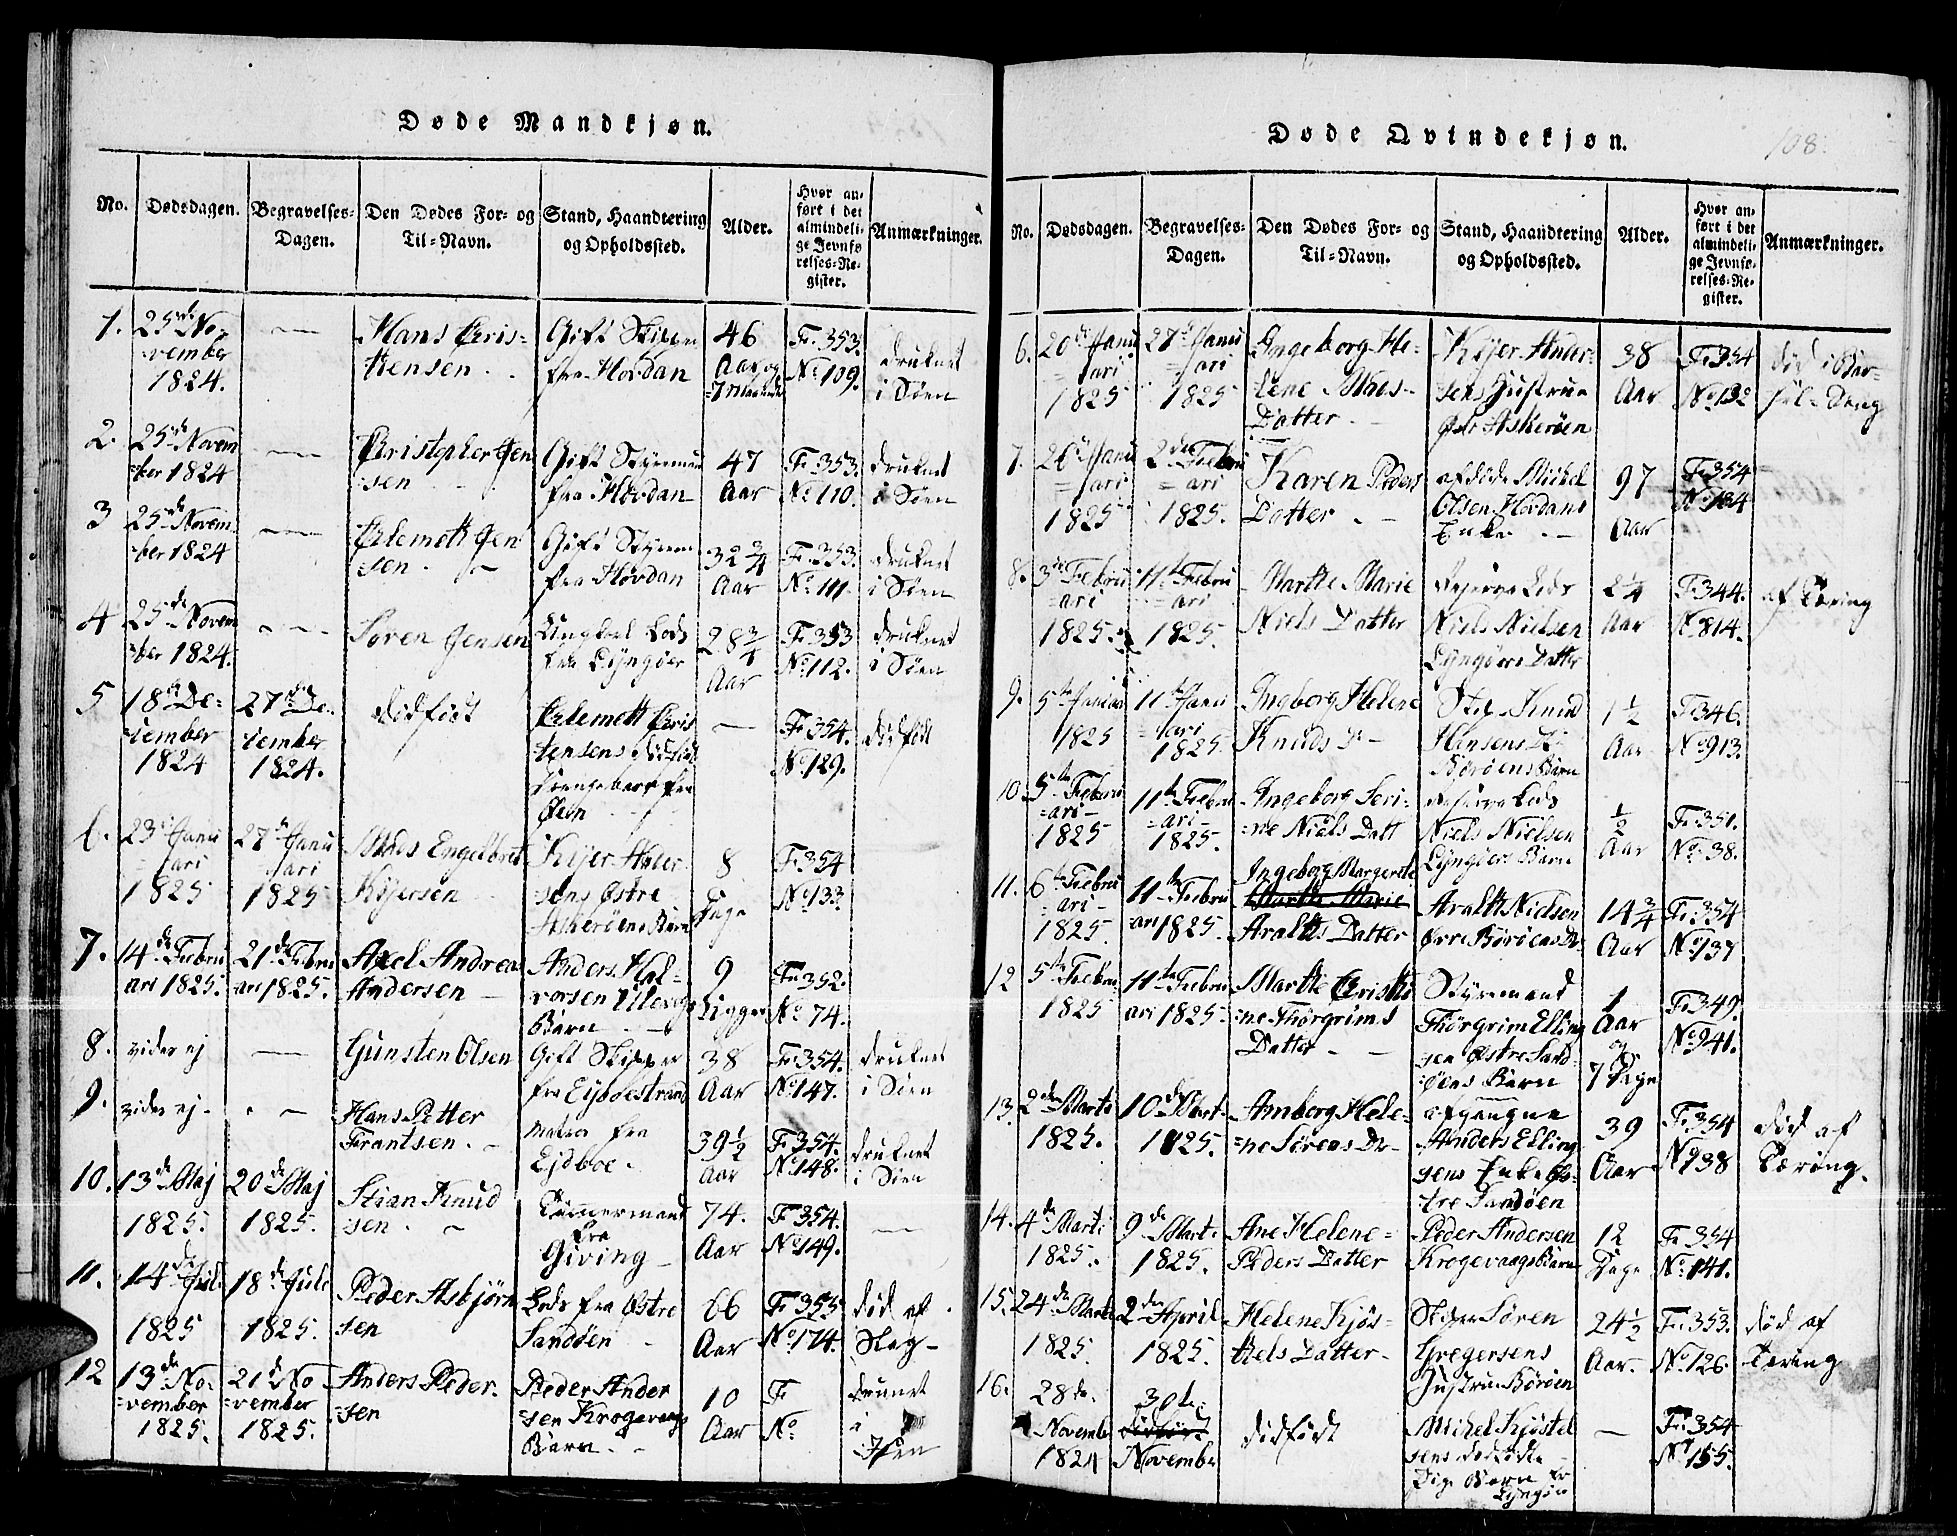 Døde Mandkjøn.
No. Dødsdagen. Begravelses-Dagen. Den Dødes For- og Til-Navn. Stand, Haandtering og Opholdssted. Alder. Hvor anført i det almindelige Jevnførelses-Register. Anmærkninger.
1. 25de November 1824. — Hans Christensen. Gift Skipper fra Hovdan 46 Aar og 7 Maaneder Fr. 353. No 109. druknet i Søen
2. 25de November 1824 — Christopher Jensen Gift Styrmand fra Hovdan 47 Aar Fr. 353. No 110. druknet i Søen
3 25de November 1824 — Clemett Jensen. Gift Styrm fra Hovdan 32 3/4 Aar Fr. 353. No 111. druknet i Søen
4 25de November 1824. — Søren Jensen Ungkarl Lods fra Lyngøer 28 3/4 Aar Fr. 353 No 112. druknet i Søen
5 18de December 1824 27de December 1824. dødføtt Clemett Christensens dødføtt Drengebarn fra Øern — Fr. 354. No 129. dødfött
6. 23de Januari 1825 27de Januari 1825 Mads Engelbret Kijersen Kijer Andersens Østre Askerøens Barn 8 Dage Fr. 354 No 133
7. 14de Februari 1825. 21de Februari 1825. Axel Andreas Andersen Anders Halvorsen Barn 9 Fr. 352. No 74.
8. vides ej — Gunsten Olsen Gift Skipper fra Eijdboestrand 38 Aar Fr. 354. No 147. druknet i Søen
9. vides ej — Hans Petter Frantsen. Matros fra Ejdboe. 39 1/2 Aar Fr. 354. No 148. druknet i Søen
10. 13de Maj 1825. 20de Maj 1825. Stian Knudsen. Tømmermand fra Giving 74. Aar Fr. 354. No 149. —
11. 14de Juli 1825 18de Juli 1825. Peder Asbjørnsen Lods fra Østre Sandøen 66 Aar Fr. 355 No 174. død af Slag
12 13de November 1825. 21de November 1825. Anders Pedersen Peder Andersen Krogevaags Barn. 10 Aar Fr No i Isen
Døde Qvindekjøn.
108.
No. Dødsdagen. Begravelses-Dagen. Den Dødes For- og Til-Navn. Stand, Haandtering og Opholdssted. Alder. Hvor anført i det almindelige Jevnførelses-Register. Anmærkninger.
6. 20de Januari 1825 27de Januari 1825 Ingeborg Helene Mads Datter. Kijer Andersens Hustrue Askerøen 38 Aar Fr. 354 No 132 død i Barsel-Seng
7. 26de Januari 1825 2den Februari 1825. Karen Peders Datter. afdøde Michel Olsen Hovdans Enke. 97 Aar Fr. 354 No 134
8. 3de Februari 1825. 11te Februari 1825. Marthe Marie Niels Datter Reserve Lods Niels Nielsen Lyngøers Datter 2 1/4 Aar Fr. 344. No 814. af Tæring
9. 5te Januar 1825 11te Januari 1825. Ingborg Helene Knuds Dr Skip Knud Hansens Borøens Barn 1 1/2 Aar Fr. 346. No 913.
10. 5te Februari 1825 11te Februari 1825. Ingeborg Serine Niels Datt Reserve Lods Niels Nielsen Lyngøers Barn 1/2 Aar Fr. 351. No 38.
11. 6te Februari 1825. 11te Februari 1825. Ingeborg Margerete Marthe Marie Aralts Datter Aralt Nielsen Borøens Dr 14 3/4 Aar Fr. 354 No 137
12 5te Februar 1825 11te Februari 1825. Marthe Christine Thorgrims Datter Styrmand Thorgrim Ellingsen Østre Sandøens Barn 1 Aar og 7 Dage Fr. 349. No 941.
13. 2den Marts 1825. 10de Mart. 1825. Amborg Helene Sørens Dr afgangne Anders Ellingsens Enke Østre Sandøen 39 Aar Fr. 354 No 138 død af Tæring.
14. 4de Marti 1825. 9de Mart. 1825. Ane Helene Peders Datter Peder Andersen Krogevaags Barn 12 Dage Fr. 354 No 141.
15. 24de Marti 1825. 2den April 1825. Helene Kjøstels Datter Skipper Søren Gregersens Hustru Borøen 24 1/2 Aar. Fr. 353. No 126. død af Tæring
16. 28de November 1824 30te November dödfödt Michel Kjøstelsens dødfødte Pige Barn fr Lyngøer — Fr. 354 No 155.